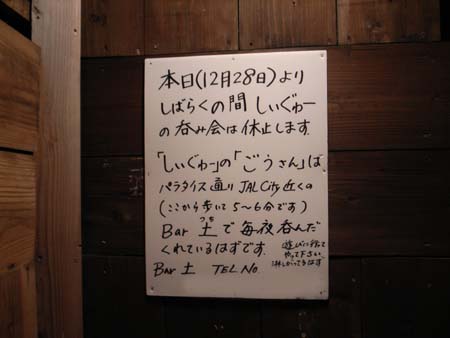 本日(12月28日)より
しばらくの間 しぃぐゎー
の呑み会は休止します。
「しぃぐゎ」の「ごうさん」は
パラダイス通り JAL City 近くの
(ここから歩いて5〜6分です)
つち
Bar 土で毎夜呑んだ
くれているはずです。
遊びに行って
やって下さい
淋しがってるはず
Bar 土 TEL No